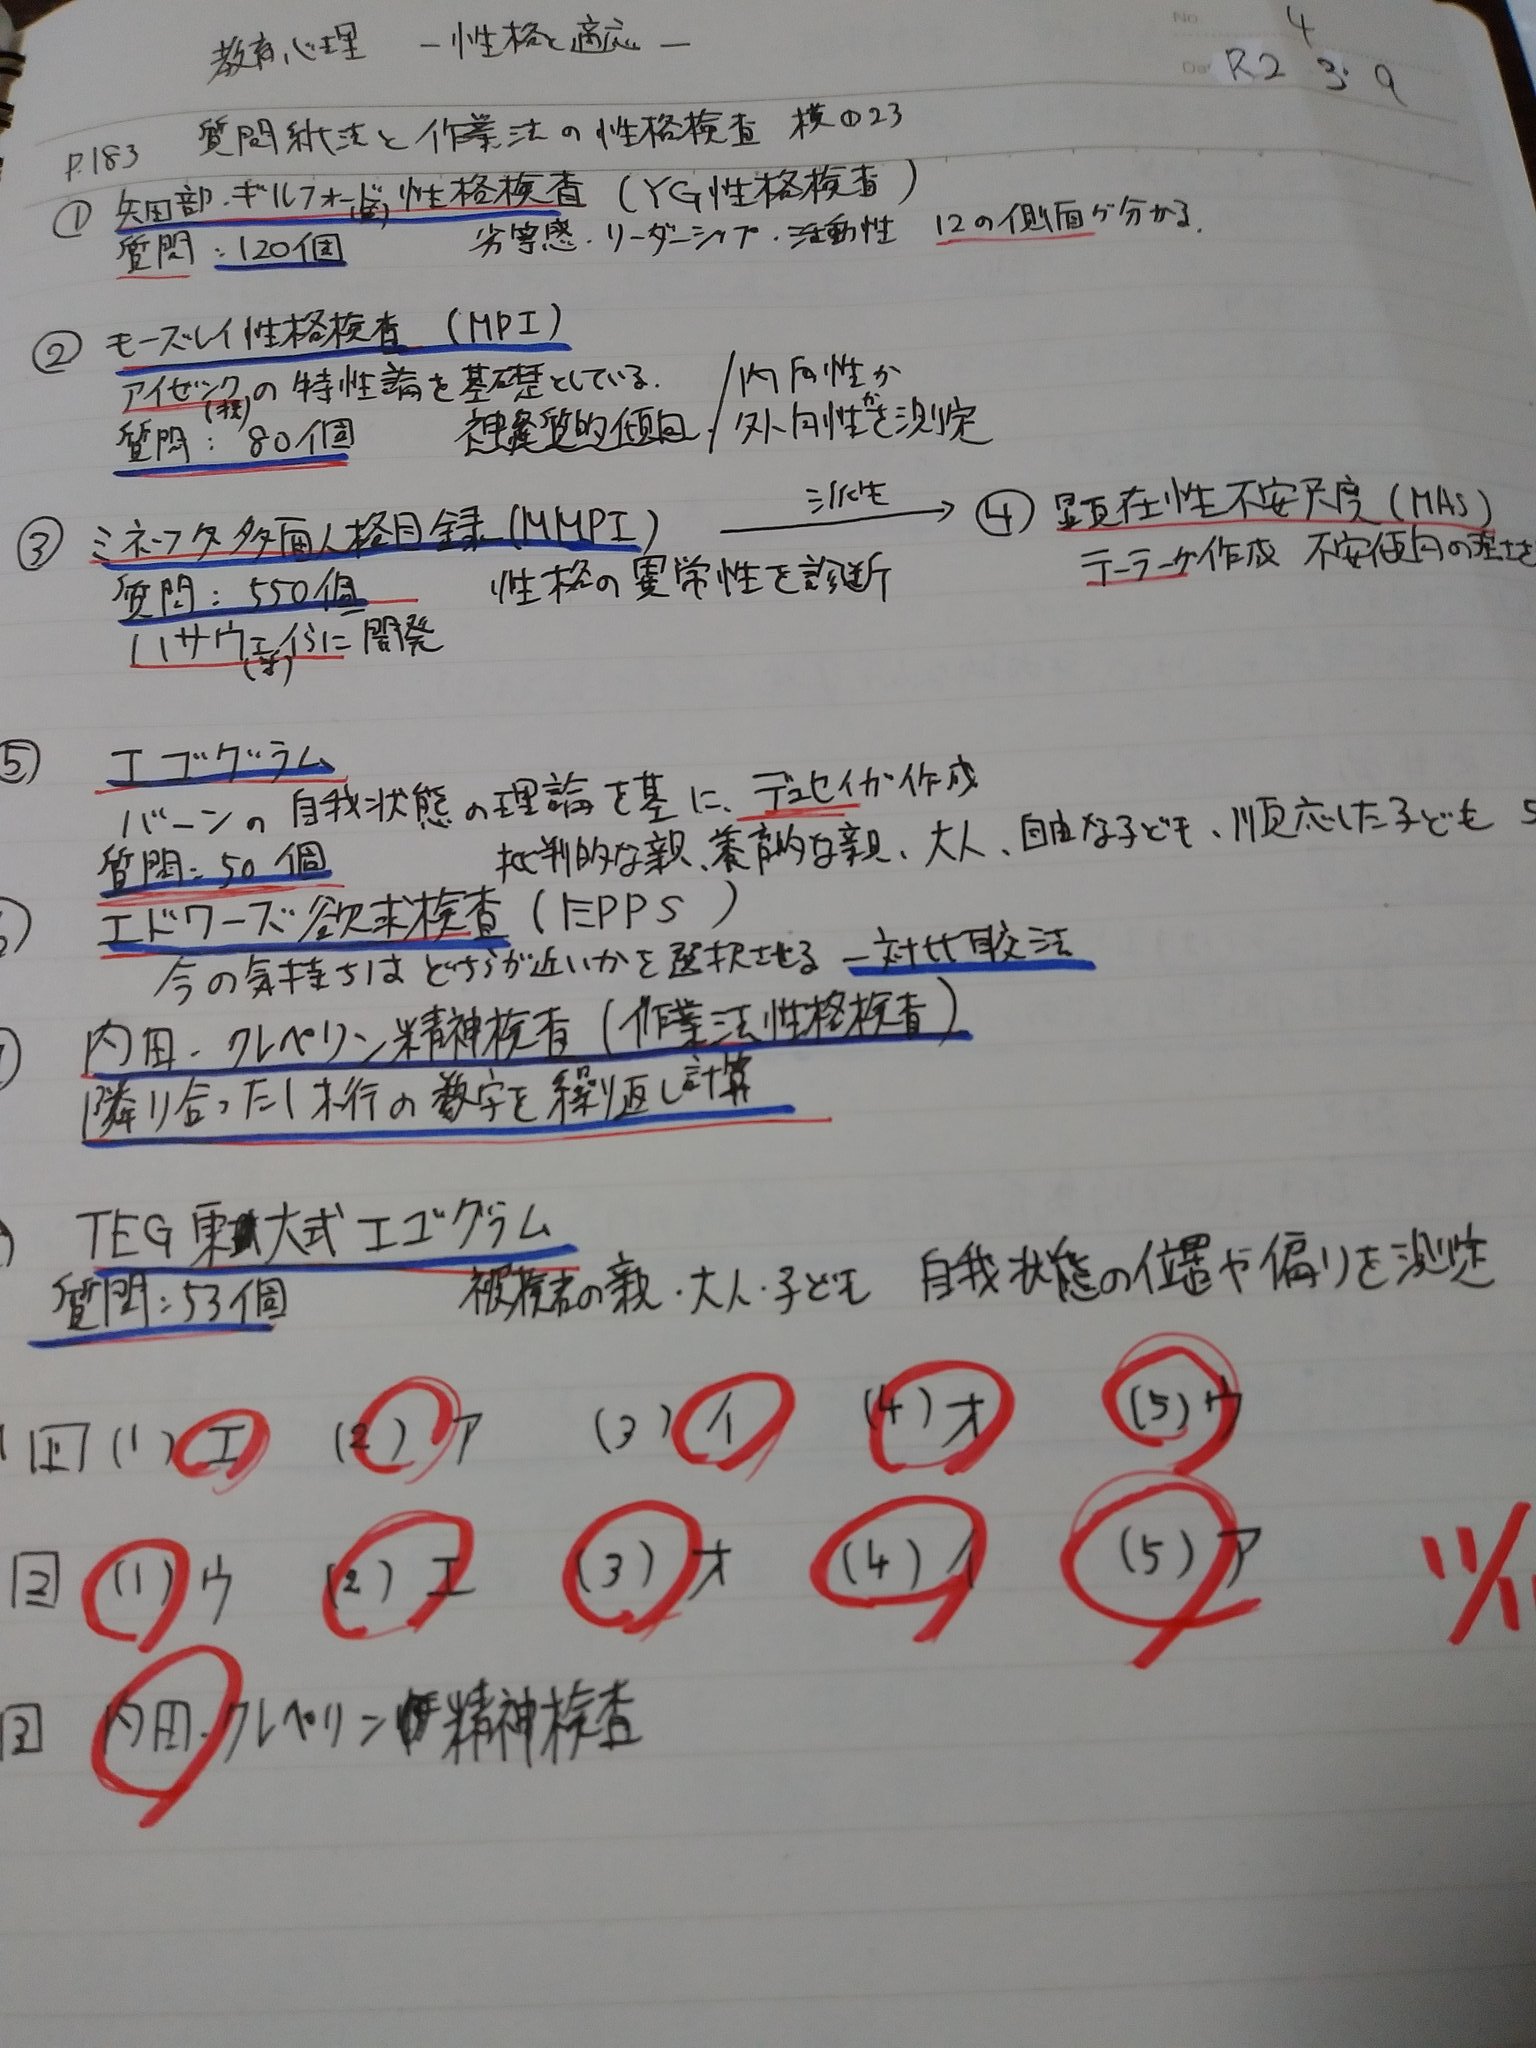 教育心理 －性格と適応－
R2 4 3.9
P.183 質問紙法と作業法の性格検査 模①23
① 矢田部・ギルフォード性格検査 (YG性格検査)
質問:120個 劣等感・リーダーシップ・活動性 12の側面が分かる。
② モーズレイ性格検査 (MPI)
アイゼンクの特性論を基礎としている。 内向性か
質問:80個 神経質的傾向 / 外向性かを測定
③ ミネソタ多面人格目録 (MMPI) 派生 → ④ 顕在性不安尺度(MAS)
質問:550個 性格の異常性を診断 テーラーが作成 不安傾向の
ハサウェイらに開発
⑤ エゴグラム
バーンの自我状態の理論を基に、デュセイが作成
質問:50個 批判的な親、養育的な親、大人、自由な子ども、順応した子ども 5
エドワーズ欲求検査(EPPS)
今の気持ちはどちらが近いかを選択させる 一対比較法
内田・クレペリン精神検査(作業法性格検査)
隣り合った1木行の数字を繰り返し計算
TEG 東大式エゴグラム
質問:53個 被検者の親・大人・子ども 自我状態の位置や偏りを測定
1 (1)エ (2)ア (3)イ (4)オ (5)ウ
2 (1)ウ (2)エ (3)オ (4)イ (5)ア 11/11
3 内田・クレペリン精神検査